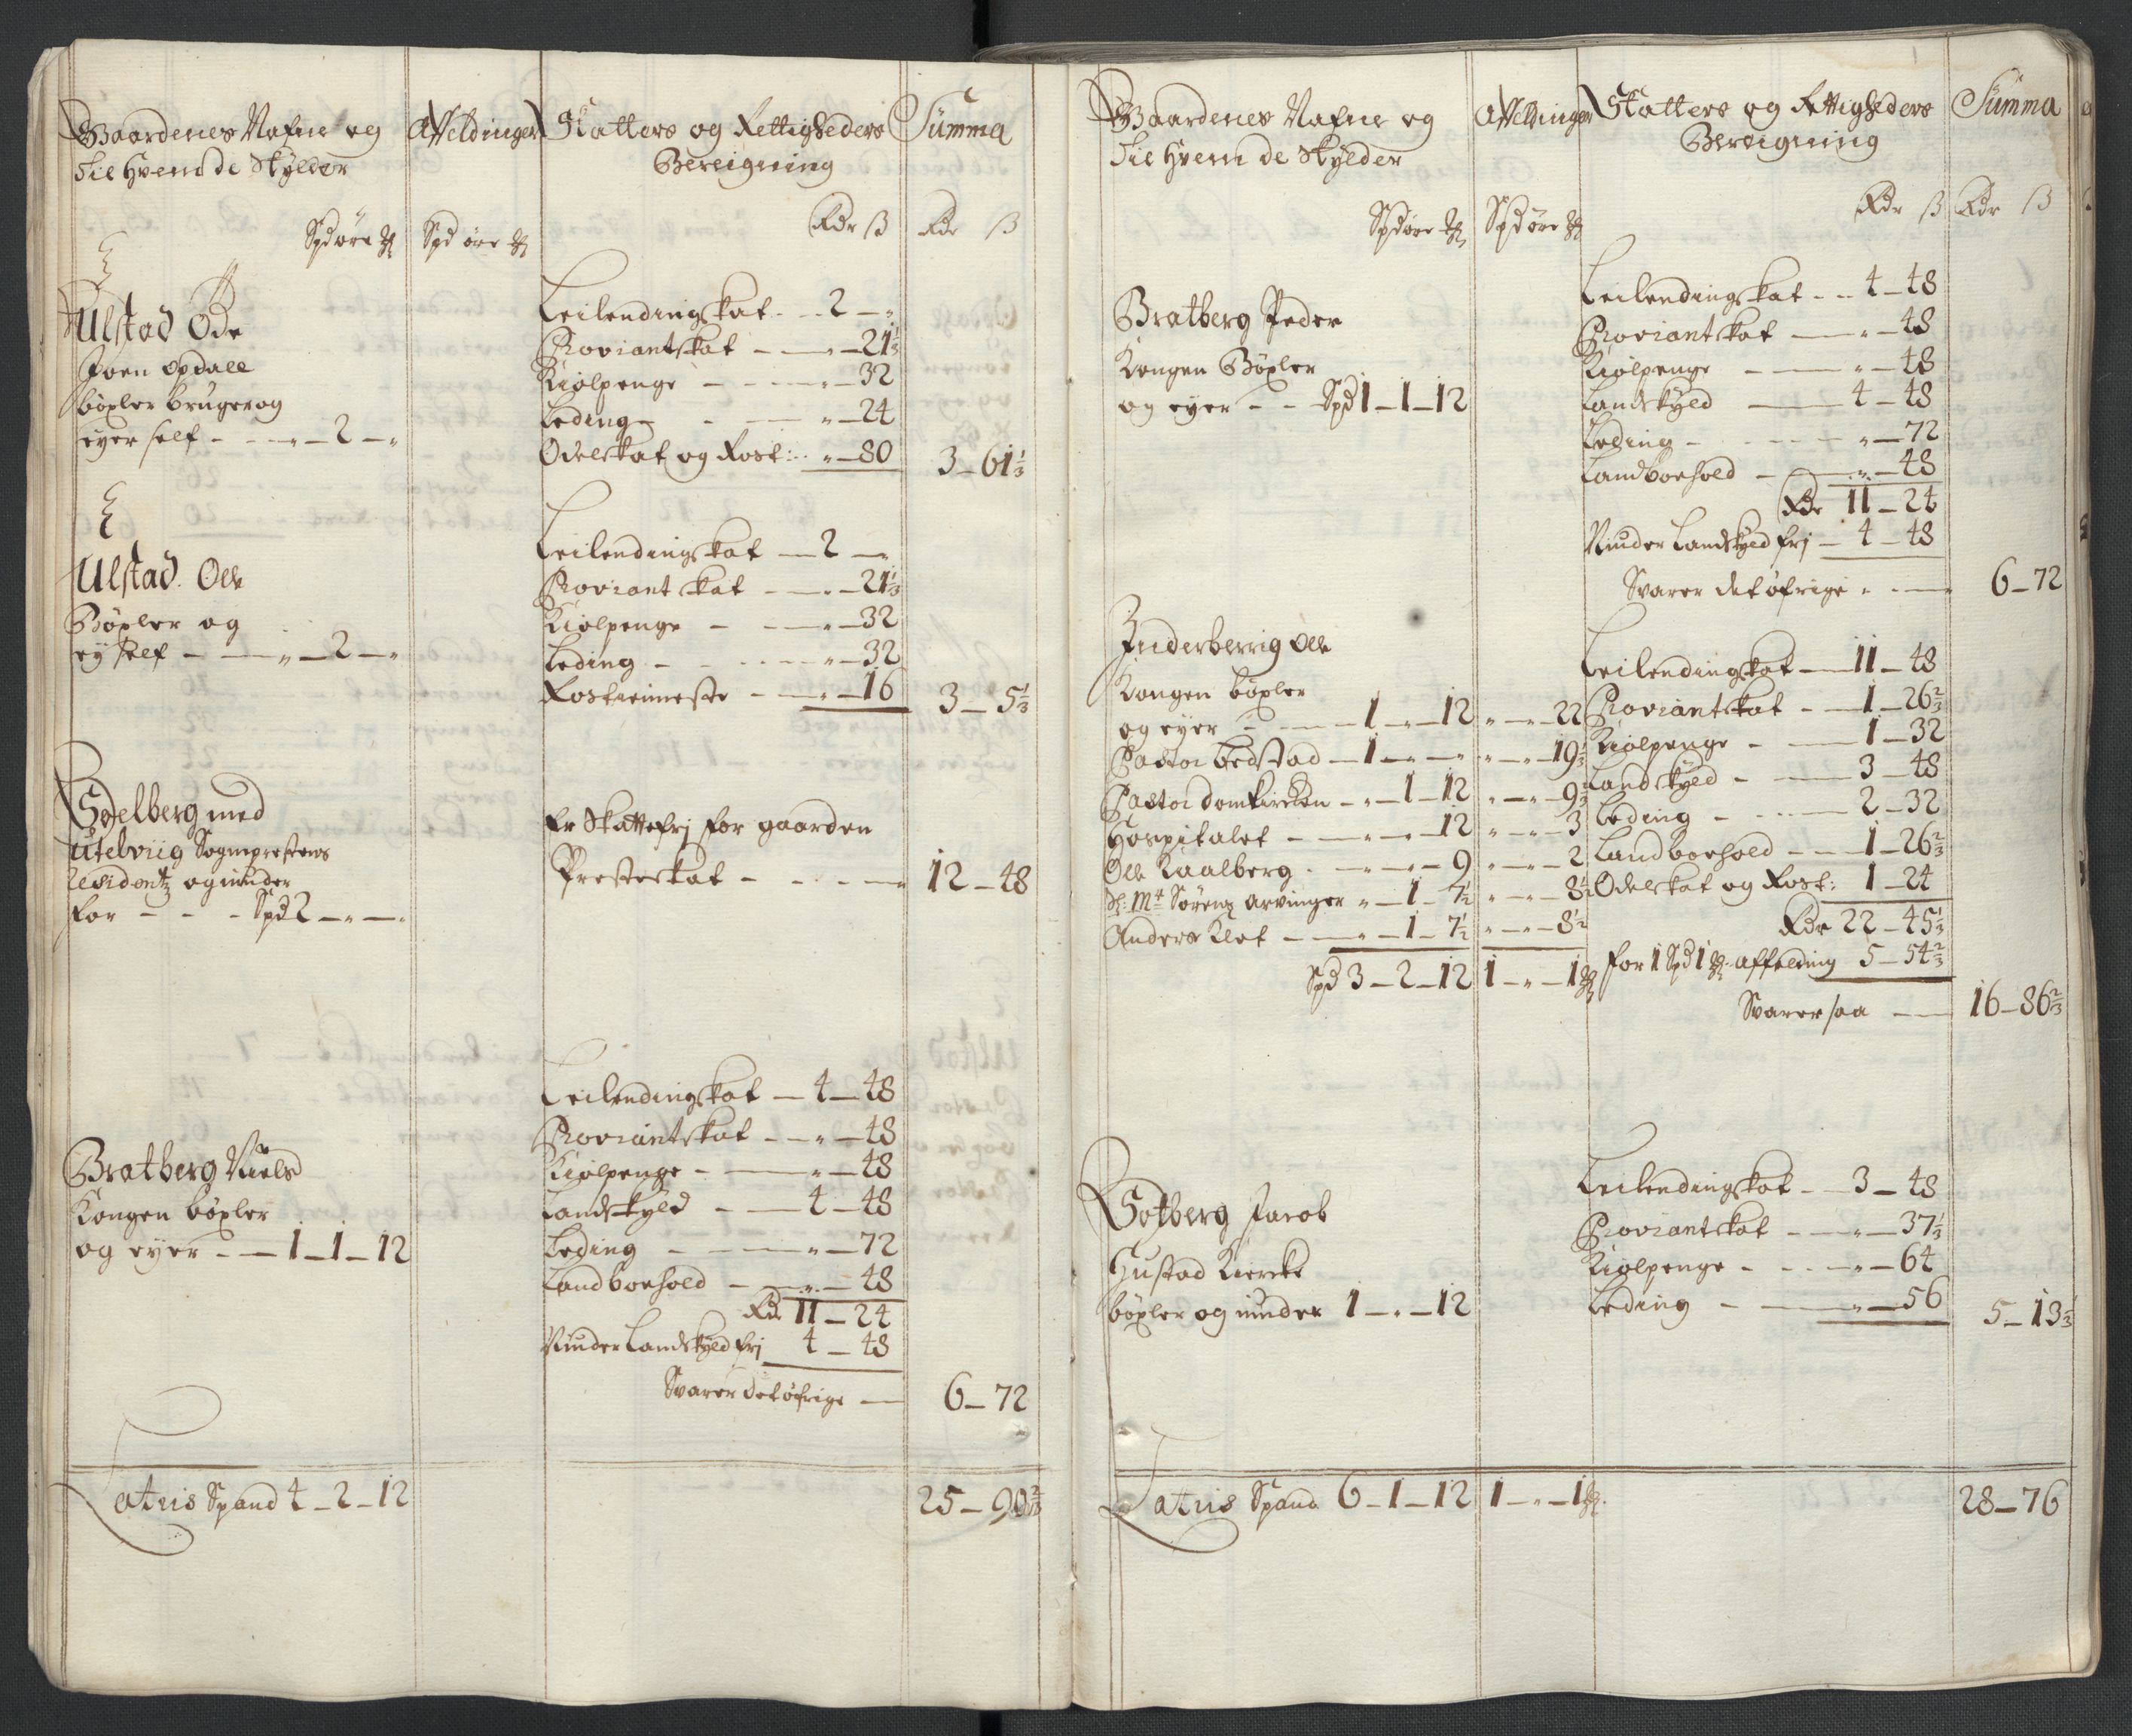 Gaardenes Nafne og
Til Hvem de Skylder
Affeldinger
Skatters og Rettigheders
Bereigning
Summa
Spd øre
Spd øre
Rdr ß
Rdr ß
Ulstad Øde
Joen Opdall
böxler bruger og
eyer self - - - " - 2 - "
Leilendingskat - - 2 - "
Proviantskat - - " - 21 1/3
Kiölpenge - - - " - 32
Leding - - - " - 24
Odelskat og Rost: - " - 80
3 - 61 1/3
Ulstad Olle
Böxler og
ey self - - " - 2 - "
Leilendingskat - 2 - "
Proviant skat - - " - 21 1/3
Kiölpenge - - " - 32
Leding - - - " - 32
Rostienneste - - " - 16
3 - 5 1/3
med
Utelvriig Sogneprestens
Residentz og under
for - - - Spd 2 - " - "
Er Skattefrj for gaarden
Presteskat - - - - "
12 - 48
Bratberg Niels
Kongen böxler
og eyer - - 1 - 1 - 12
Leilendingskat - 4 - 48
Proviantskat - - " - 48
Kiölpenge - - " - 48
Landskyld - - 4 - 48
Leding - - - " - 72
Landboehold - - " - 48
Rdr 11 - 24
Niuder Landskyld frj 4 - 48
Svarer det øfrige -
6 - 72
Latris Spand 4 - 2 - 12
25 - 90 2/3
Gaardenes Nafne og
Til Hvem de Skylder
Affeldinger
Skatters og Rettigheders
Bereigning
Summa
Spd øre
Spd øre
Rdr ß
Rdr ß
Bratberg Peder
Kongen Böxler
og eyer - - Spd 1 - 1 - 12
Leilendingskat - - 4 - 48
Proviantskat - " - 48
Kiölpenge - - " - 48
Landskyld - 4 - 48
Leding - - - - " - 72
Landboehold - - " - 48
Rdr 11 - 24
Niuder Landskyld frj - 4 - 48
Svarer det øfrige " - - "
6 - 72
Inderberrig Olle
Kongen böxler
og eyer - - 1 - " - 12 " - " - 22
Pastor Bedstad - 1 - " - " " - " - 19 1/2
Pastor Domkircken - " - 1 - 12 " - " - 9 1/2
Hospitalet - - " - " - 12 " - " - 3
Olle Kaalberg - " - " - 9 " - " - 2
Sl: Mr Sörens Arvinger " - 1 - 7 1/2 " - " - 8 1/2
Anders Klot - - " - 1 - 7 1/2 " - " - 8 1/2
Spd 3 - 2 - 12 1 - " - 1
Leilendingskat - 11 - 48
Proviantskat - - 1 - 26 2/3
Kiölpenge - - 1 - 32
Landskyld - - 3 - 48
Leding - - - 2 - 32
Landboehold - - 1 - 26 2/3
Odelskat og Rost: 1 - 24
Rdr 22 - 45 1/3
for 1 Spd 1 affelding 5 - 54 2/3
Svarer saa -
16 - 86 2/3
Jacob
Hustad Kiercke
böxler og under 1 - " - 12
Leilendingskat - - 3 - 48
Proviantskat - - " - 37 1/3
Kiölpenge - - - " - 64
Leding - - " - 56
5 - 13 1/3
Latris Spand 6 - 1 - 12 1 - " - 1
28 - 76